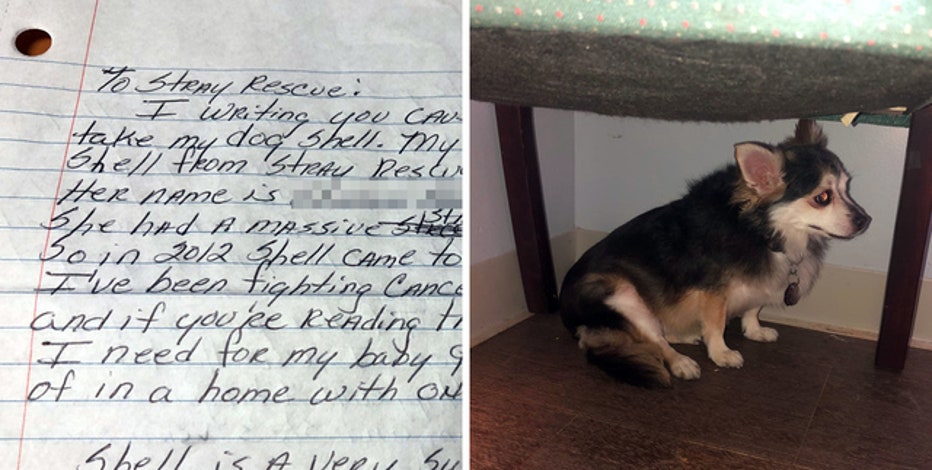 To Stray Rescue:
I writing you cau
take my dog Shell. My
Shell from Stray Rescu
Her name is
She had a massive
So in 2012 Shell came to
I've been fighting cance
and if you're reading
I need for my baby
of in a home with on
Shell is a very su